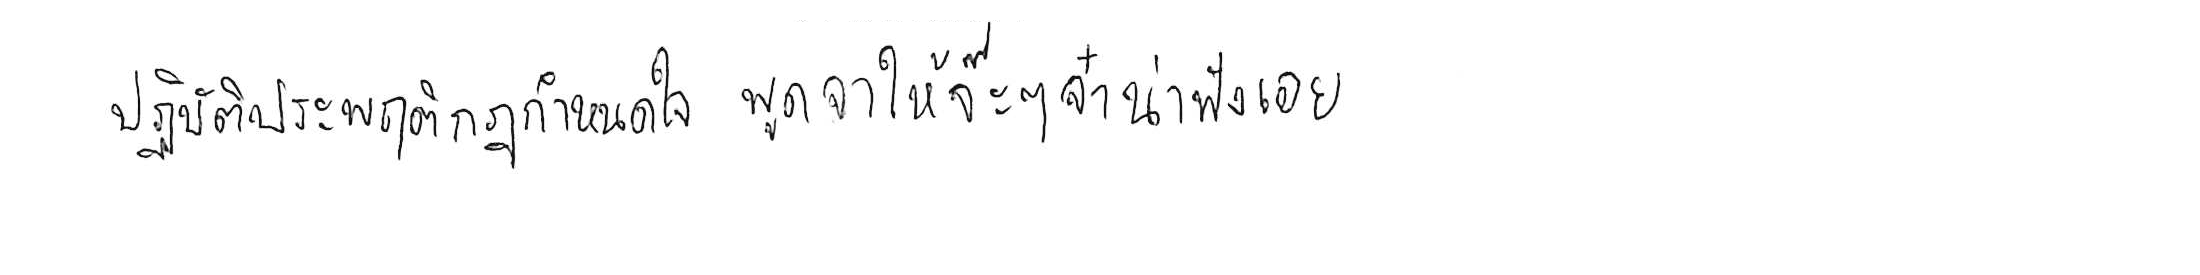 ปฏิบัติประพฤติกฎกำหนดใจ พูดจาให้จ๊ะๆจ๋าน่าฟังเอย